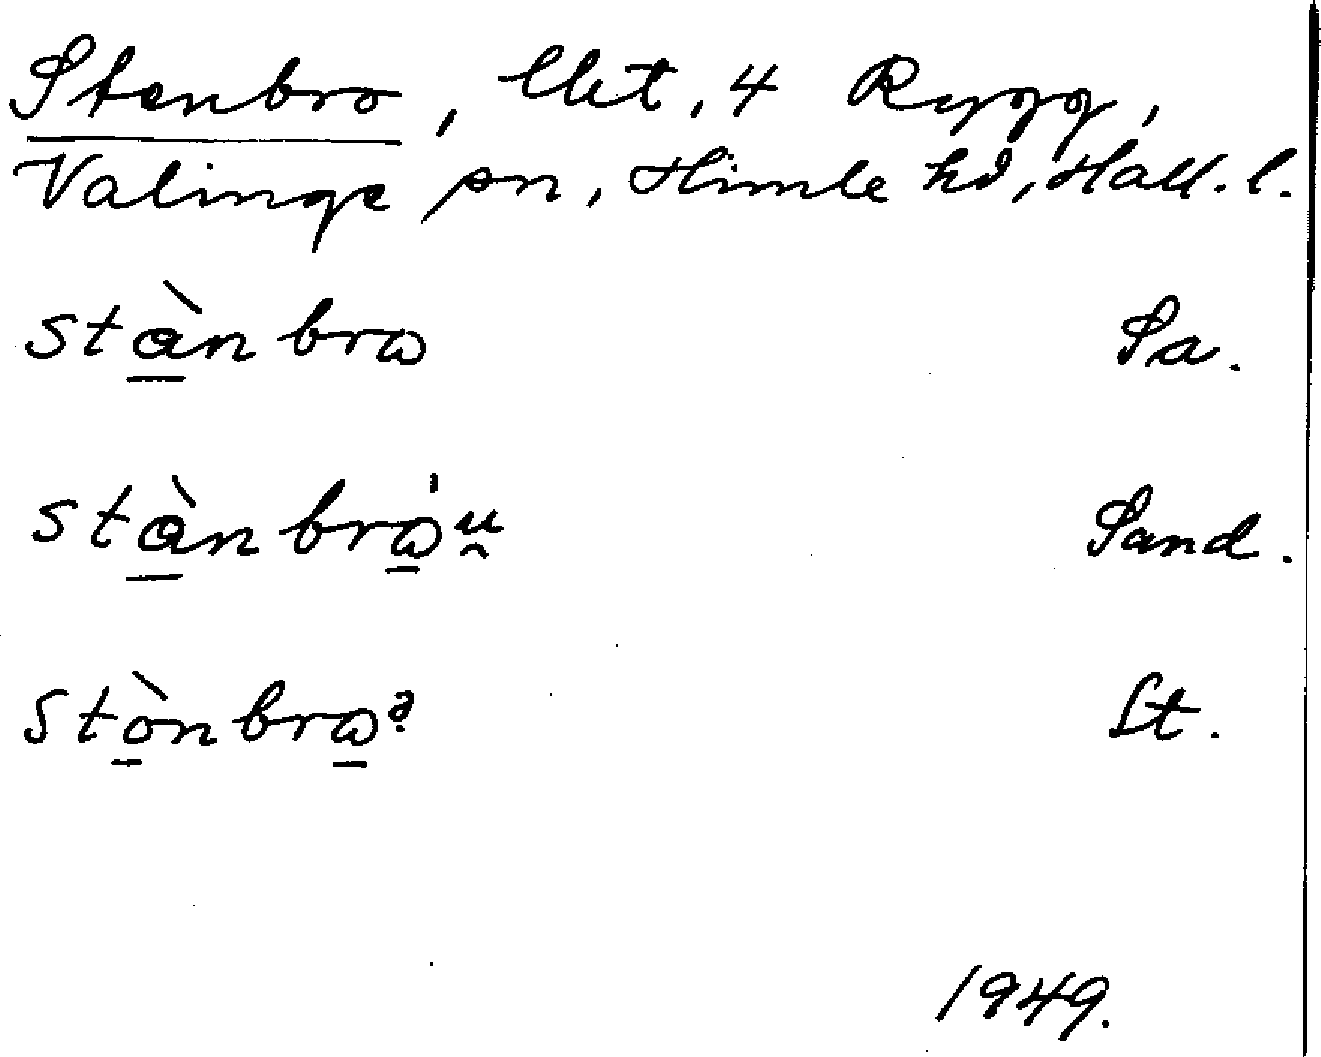 Stenbro, lht. 4 Rygg,
Valinge sn, Himle hd, Hall. l.
stə̀nbrω Sa.
stə̀nbrω̍u̯ Sand.
stònbrωə St.
1949.